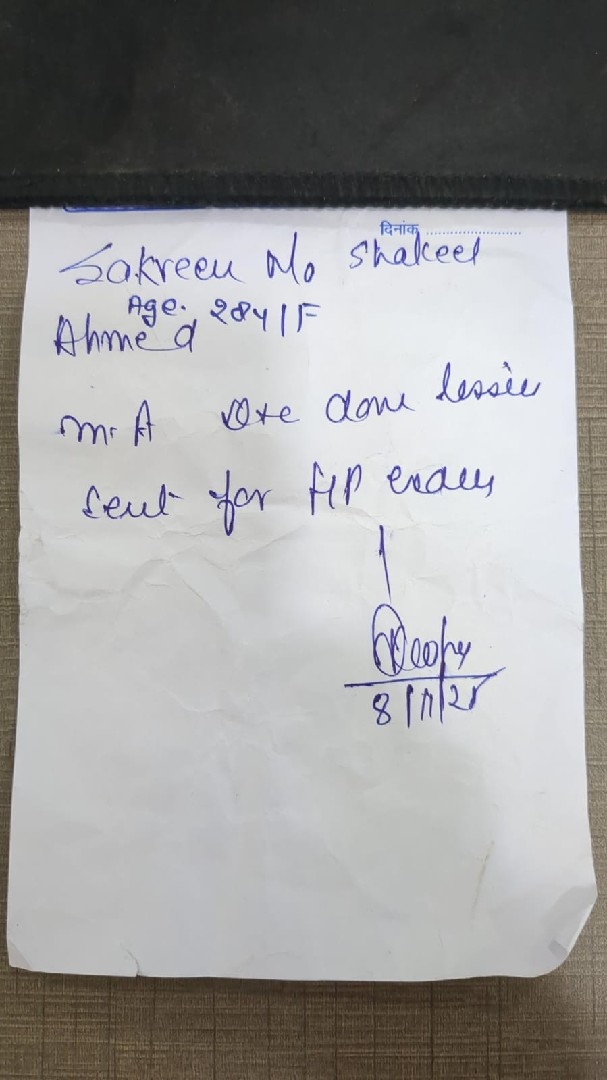 दिनांक ........................
Sakreen Mo Shakeel
Age. 28y/F
Ahmed
m.A done
Sent for HP exam
8/11/25